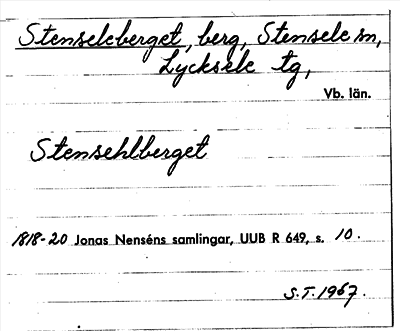 Stenseleberget, berg, Stensele sn,
Lycksele tg,
Vb. län.
Stensehlberget
1818-20 Jonas Nenséns samlingar, UUB R 649, s. 10.
S.T. 1967.